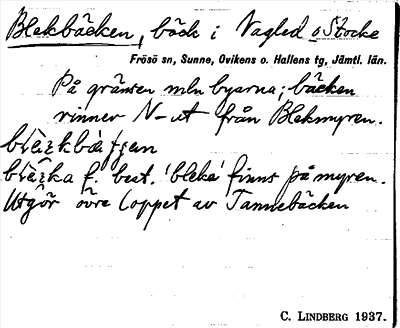 Blekbäcken, bäck i Vagled o Stocke
Frösö sn, Sunne, Ovikens o. Hallens tg, Jämtl. län.
På gränsen mln byarna; bäcken
rinner N-ut från Blekmyren.
f. best. 'bleke' finns på myren.
Utgör övre loppet av Tannebäcken
C. LINDBERG 1937.